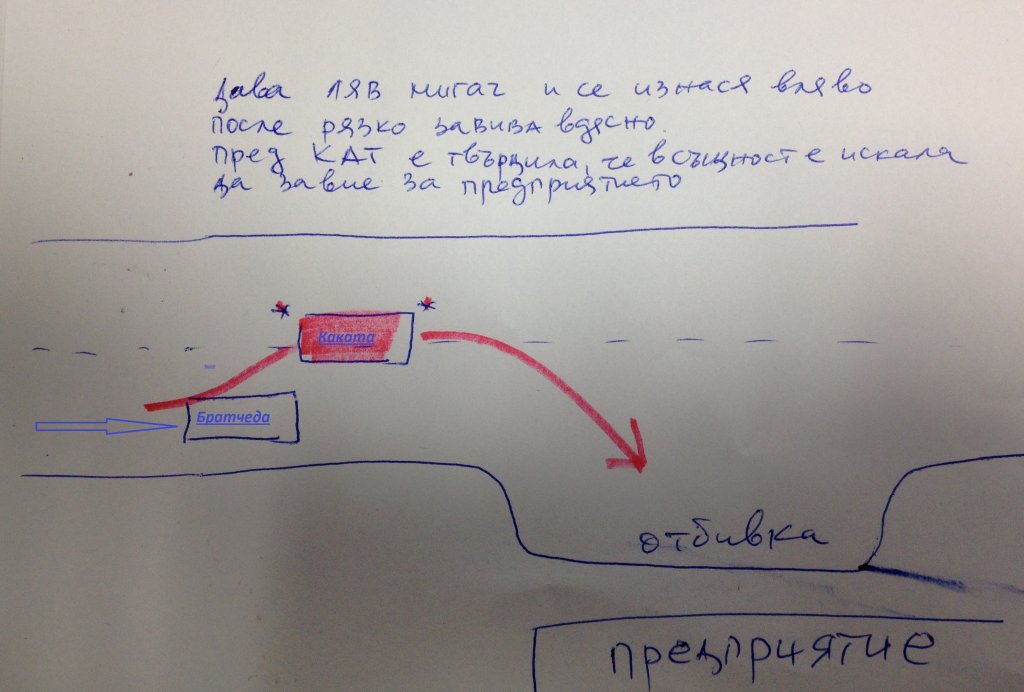 дава ляв мигач и се изнася вляво
после рязко завива вдясно.
пред КАТ е твърдила, че всъщност е искала
да завие за предприятието
Каката
Братчеда
отбивка
предприятие